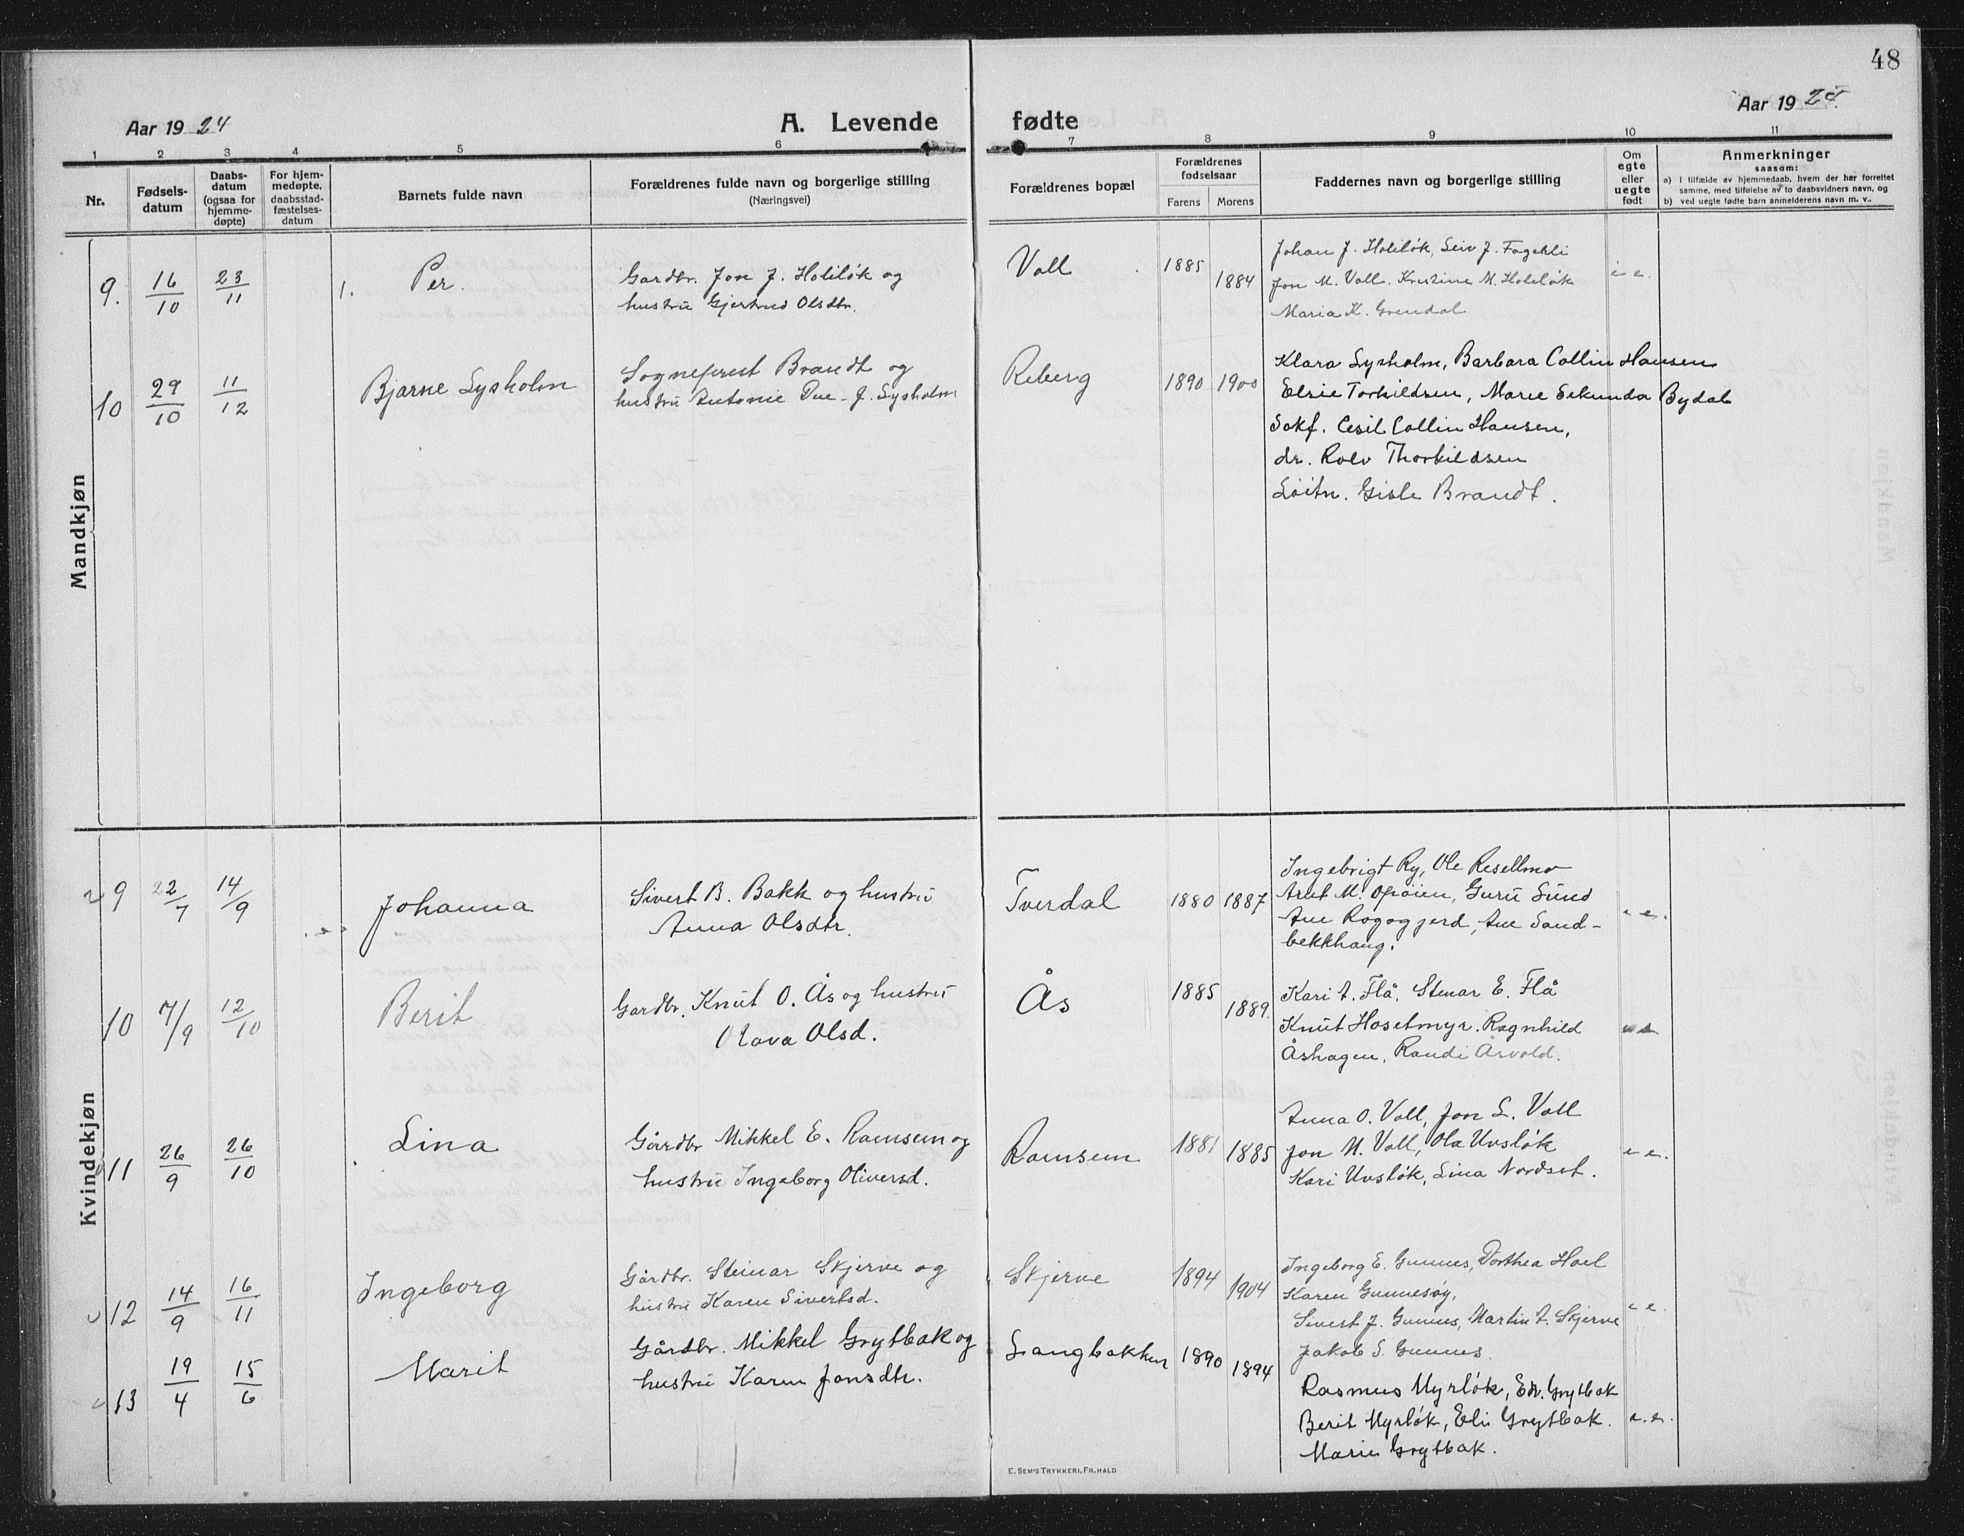 48
Aar 1924
A. Levende fødte
Aar 1924.
1 2 3 4 5 6 7 8 9 10 11
Nr.
Fødsels-
datum
Daabs-
datum
(ogsaa for
hjemme-
døpte)
For hjem-
medøpte,
daabsstad-
fæstelses-
datum
Barnets fulde navn
Forældrenes fulde navn og borgerlige stilling
(Næringsvei)
Forældrenes bopæl
Forældrenes
fødselsaar
Farens Morens
Faddernes navn og borgerlige stilling
Om
egte
eller
uegte
født
Anmerkninger
saasom:
a) i tilfælde av hjemmedaab, hvem der har forrettet
samme, med tilføielse av to daabsvidners navn, og
b) ved uegte fødte barn anmelderens navn m. v.
Mandkjøn
9. 16/10 23/11 1. Per.
Gardbr. Jon J. Holiløk og
hustru Gjertrud Olsdtr.
Voll 1885 1884
Johan J. Holiløk, Seiv J. Fagerli
Jon M. Voll. Kristine M. Holiløk
Maria K. Grendal
10 29/10 11/12 Bjarne Lysholm
Sogneprest Brandt og
hustru Antonie Due f. Lysholm
Reberg 1890 1900
Klara Lysholm, Barbara Collin Hansen
Elsie Torkildsen, Marie Sekunda Bydal
Sakf. Cesil Collin Hansen,
dr. Rolv Thorkildsen
Løitn. Gisle Brandt.
Kvindekjøn
9 22/7 14/9 Johanna
Sivert B. Bakk og hustru
Anna Olsdtr.
Tverdal 1880 1887
Ingebrigt Ry, Ole Resellmo
Arnt M. Opøien, Guru Sund
Ane Rogogjerd, Ane Sand-
bekkhaug.
e e.
10 7/9 12/10 Berit
Gardbr. Knut O. Ås og hustru
Olava Olsd.
Ås 1885 1889.
Kari A. Flå, Steinar E. Flå
Knut Hosetmyr. Ragnhild
Åshagen, Randi Åsvold.
11 26/9 26/10 Lina
Gårdbr Mikkel E. Ramsem og
hustru Ingeborg Oliversd.
Ramsem 1881 1885
Anna O. Voll, Jon L. Voll
Jon M. Voll, Ola Uvsløk
Kari Uvsløk, Lina Nordset.
e e.
12 14/9 16/11 Ingeborg
Gårdbr. Steinar Skjerve og
hustru Karen Sivertsd.
Skjerve 1894 1904
Ingeborg E. Gunnes, Dorthea Hoel
Karen Gunnesøy,
Sivert J. Gunnes, Martin A. Skjerve
Jakob S. Gunnes.
e e.
13 19/4 15/6 Marit
Gårdbr. Mikkel Grytbak og
hustru Karen Jonsdtr.
Langbakken 1890 1894
Rasmus Myrløk, Edv. Grytbak
Berit Myrløk, Eli Grytbak.
Marie Grytbak.
e. e.
E. SEM'S TRYKKERI, FR.HALD